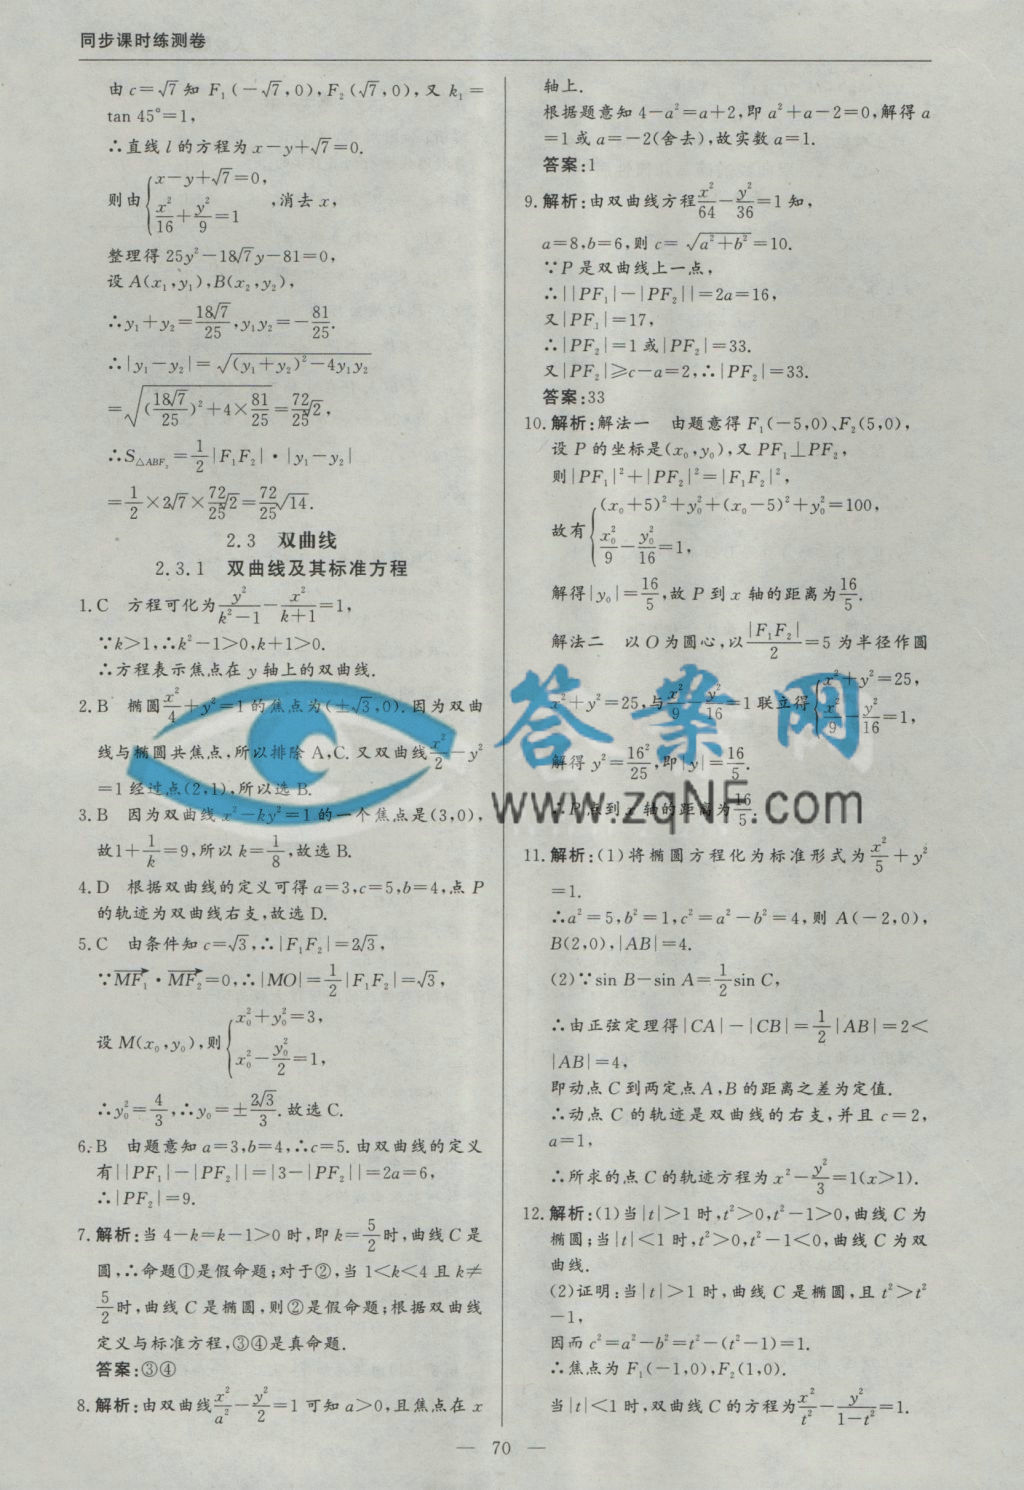 同步课时练测卷
由c=√7知F₁(-√7,0),F₂(√7,0),又k₁=
tan 45°=1,
∴直线l的方程为x-y+√7=0.
则由{x-y+√7=0, x²/16+y²/9=1,消去x,
整理得25y²-18√7y-81=0,
设A(x₁,y₁),B(x₂,y₂),
∴y₁+y₂=18√7/25,y₁y₂=-81/25.
∴|y₁-y₂|=√((y₁+y₂)²-4y₁y₂)
=√((18√7/25)²+4×81/25)=72√2/25,
∴S△ABF₂=1/2|F₁F₂|·|y₁-y₂|
=1/2×2√7×72√2/25=72/25√14.
2.3 双曲线
2.3.1 双曲线及其标准方程
1.C 方程可化为y²/(k²-1)-x²/(k+1)=1,
∵k>1,∴k²-1>0,k+1>0.
∴方程表示焦点在y轴上的双曲线.
2.B 椭圆x²/4+y²=1的焦点为(±√3,0).因为双曲
线与椭圆共焦点,所以排除A,C.又双曲线x²/2-y²
=1经过点(2,1),所以选B.
3.B 因为双曲线x²-ky²=1的一个焦点是(3,0),
故1+1/k=9,所以k=1/8,故选B.
4.D 根据双曲线的定义可得a=3,c=5,b=4,点P
的轨迹为双曲线右支,故选D.
5.C 由条件知c=√3,∴|F₁F₂|=2√3,
∵MF₁→·MF₂→=0,∴|MO|=1/2|F₁F₂|=√3,
设M(x₀,y₀),则{x₀²+y₀²=3, x₀²-y₀²/2=1,
∴y₀²=4/3,∴y₀=±2√3/3.故选C.
6.B 由题意知a=3,b=4,∴c=5.由双曲线的定义
有||PF₁|-|PF₂||=|3-|PF₂||=2a=6,
∴|PF₂|=9.
7.解析:当4-k=k-1>0时,即k=5/2时,曲线C是
圆,∴命题①是假命题;对于②,当1<k<4且k≠
5/2时,曲线C是椭圆,则②是假命题;根据双曲线
定义与标准方程,③④是真命题.
答案:③④
8.解析:由双曲线x²/a²-y²/2=1可知a>0,且焦点在x
轴上.
根据题意知4-a²=a+2,即a²+a-2=0,解得a
=1或a=-2(舍去),故实数a=1.
答案:1
9.解析:由双曲线方程x²/64-y²/36=1知,
a=8,b=6,则c=√(a²+b²)=10.
∵P是双曲线上一点,
∴||PF₁|-|PF₂||=2a=16,
又|PF₁|=17,
∴|PF₂|=1或|PF₂|=33.
又|PF₂|≥c-a=2,∴|PF₂|=33.
答案:33
10.解析:解法一 由题意得F₁(-5,0)、F₂(5,0),
设P的坐标是(x₀,y₀),又PF₁⊥PF₂,
则|PF₁|²+|PF₂|²=|F₁F₂|²,
故有{(x₀+5)²+y₀²+(x₀-5)²+y₀²=100, x₀²/9-y₀²/16=1,
解得|y₀|=16/5,故P到x轴的距离为16/5.
解法二 以O为圆心,以|F₁F₂|/2=5为半径作圆
x²+y²=25,与x²/9-y²/16=1联立得{x²+y²=25, x²/9-y²/16=1,
解得y²=16²/25,即|y|=16/5.
∴P点到x轴的距离为16/5.
11.解析:(1)将椭圆方程化为标准形式为x²/5+y²
=1.
∴a²=5,b²=1,c²=a²-b²=4,则A(-2,0),
B(2,0),|AB|=4.
(2)∵sin B-sin A=1/2sin C,
∴由正弦定理得|CA|-|CB|=1/2|AB|=2<
|AB|=4,
即动点C到两定点A,B的距离之差为定值.
∴动点C的轨迹是双曲线的右支,并且c=2,
a=1,
∴所求的点C的轨迹方程为x²-y²/3=1(x>1).
12.解析:(1)当|t|>1时,t²>0,t²-1>0,曲线C为
椭圆;当|t|<1时,t²>0,t²-1<0,曲线C为双
曲线.
(2)证明:当|t|>1时,曲线C是椭圆,且t²>t²
-1,
因而c²=a²-b²=t²-(t²-1)=1.
∴焦点为F₁(-1,0),F₂(1,0).
当|t|<1时,双曲线C的方程为x²/t²-y²/(1-t²)=1.
答案网
www.zqNF.com
— 70 —